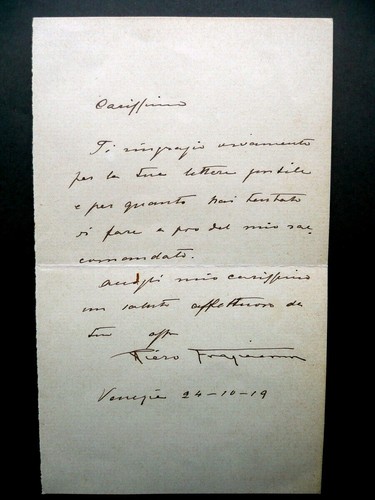 Carissimo
Ti ringrazio vivamente
per la tua lettera gentile
e per quanto hai tentato
di fare a pro del mio rac
comandato.
mio carissimo
un saluto affettuoso da
tuo aff
Piero Fragiacomo
Venezia 24-10-19